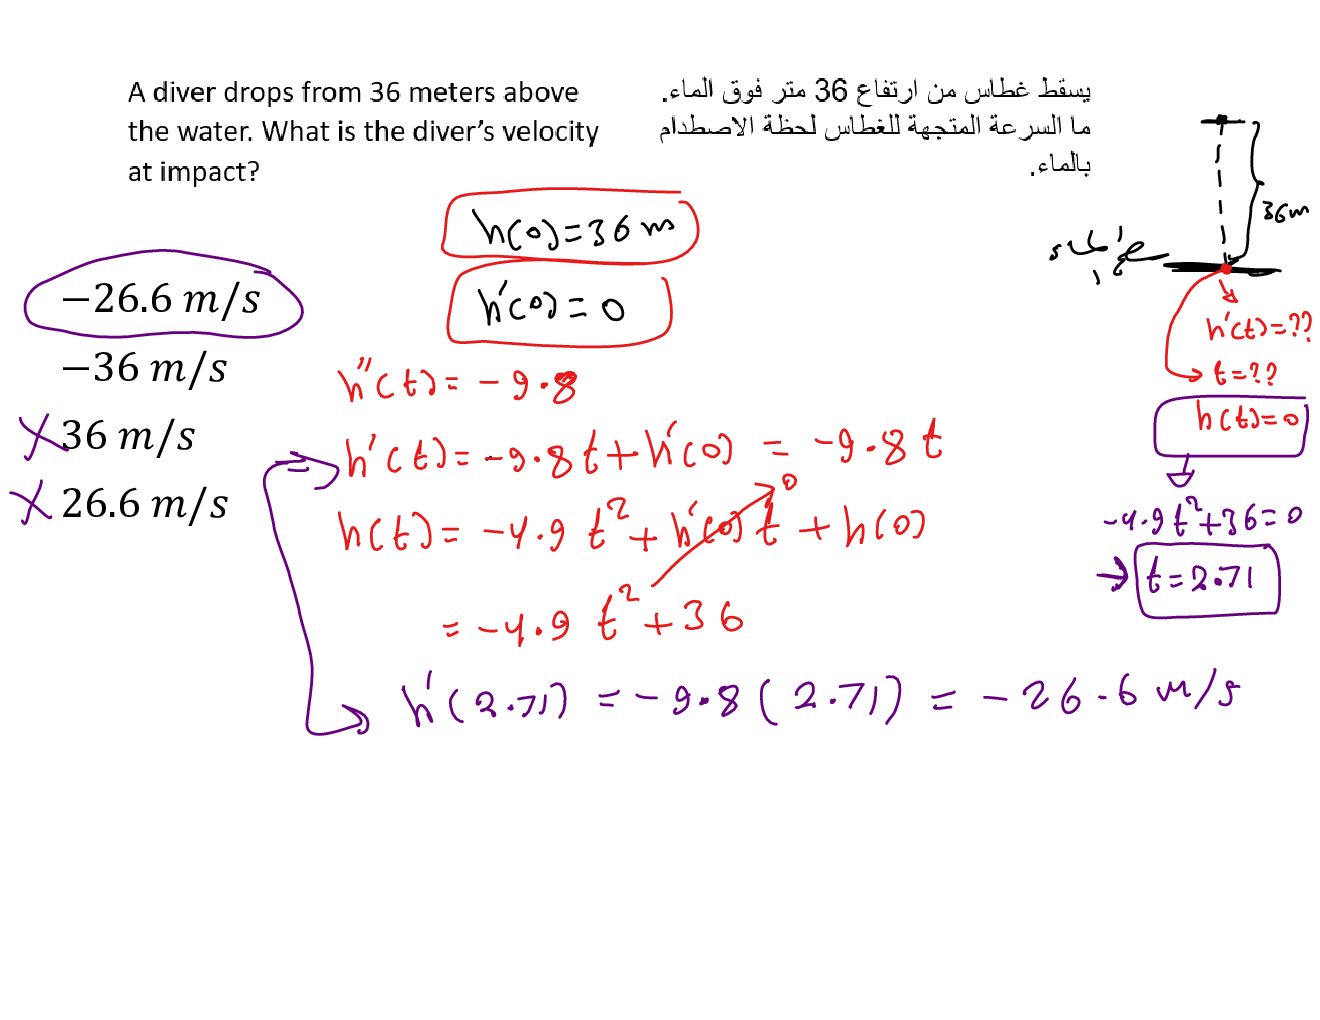 A diver drops from 36 meters above
the water. What is the diver's velocity
at impact?
يسقط غطاس من ارتفاع 36 متر فوق الماء.
ما السرعة المتجهة للغطاس لحظة الاصطدام
بالماء.
−26.6 m/s
−36 m/s
36 m/s
26.6 m/s
h(0)=36 m
h'(0)=0
h''(t)=-9.8
h'(t)=-9.8t+h'(0) = -9.8t
h(t)=-4.9t²+h'(0)t+h(0)
0
=-4.9t²+36
h'(2.71)=-9.8(2.71)=-26.6 m/s
36m
h'(t)=??
t=??
h(t)=0
-4.9t²+36=0
t=2.71